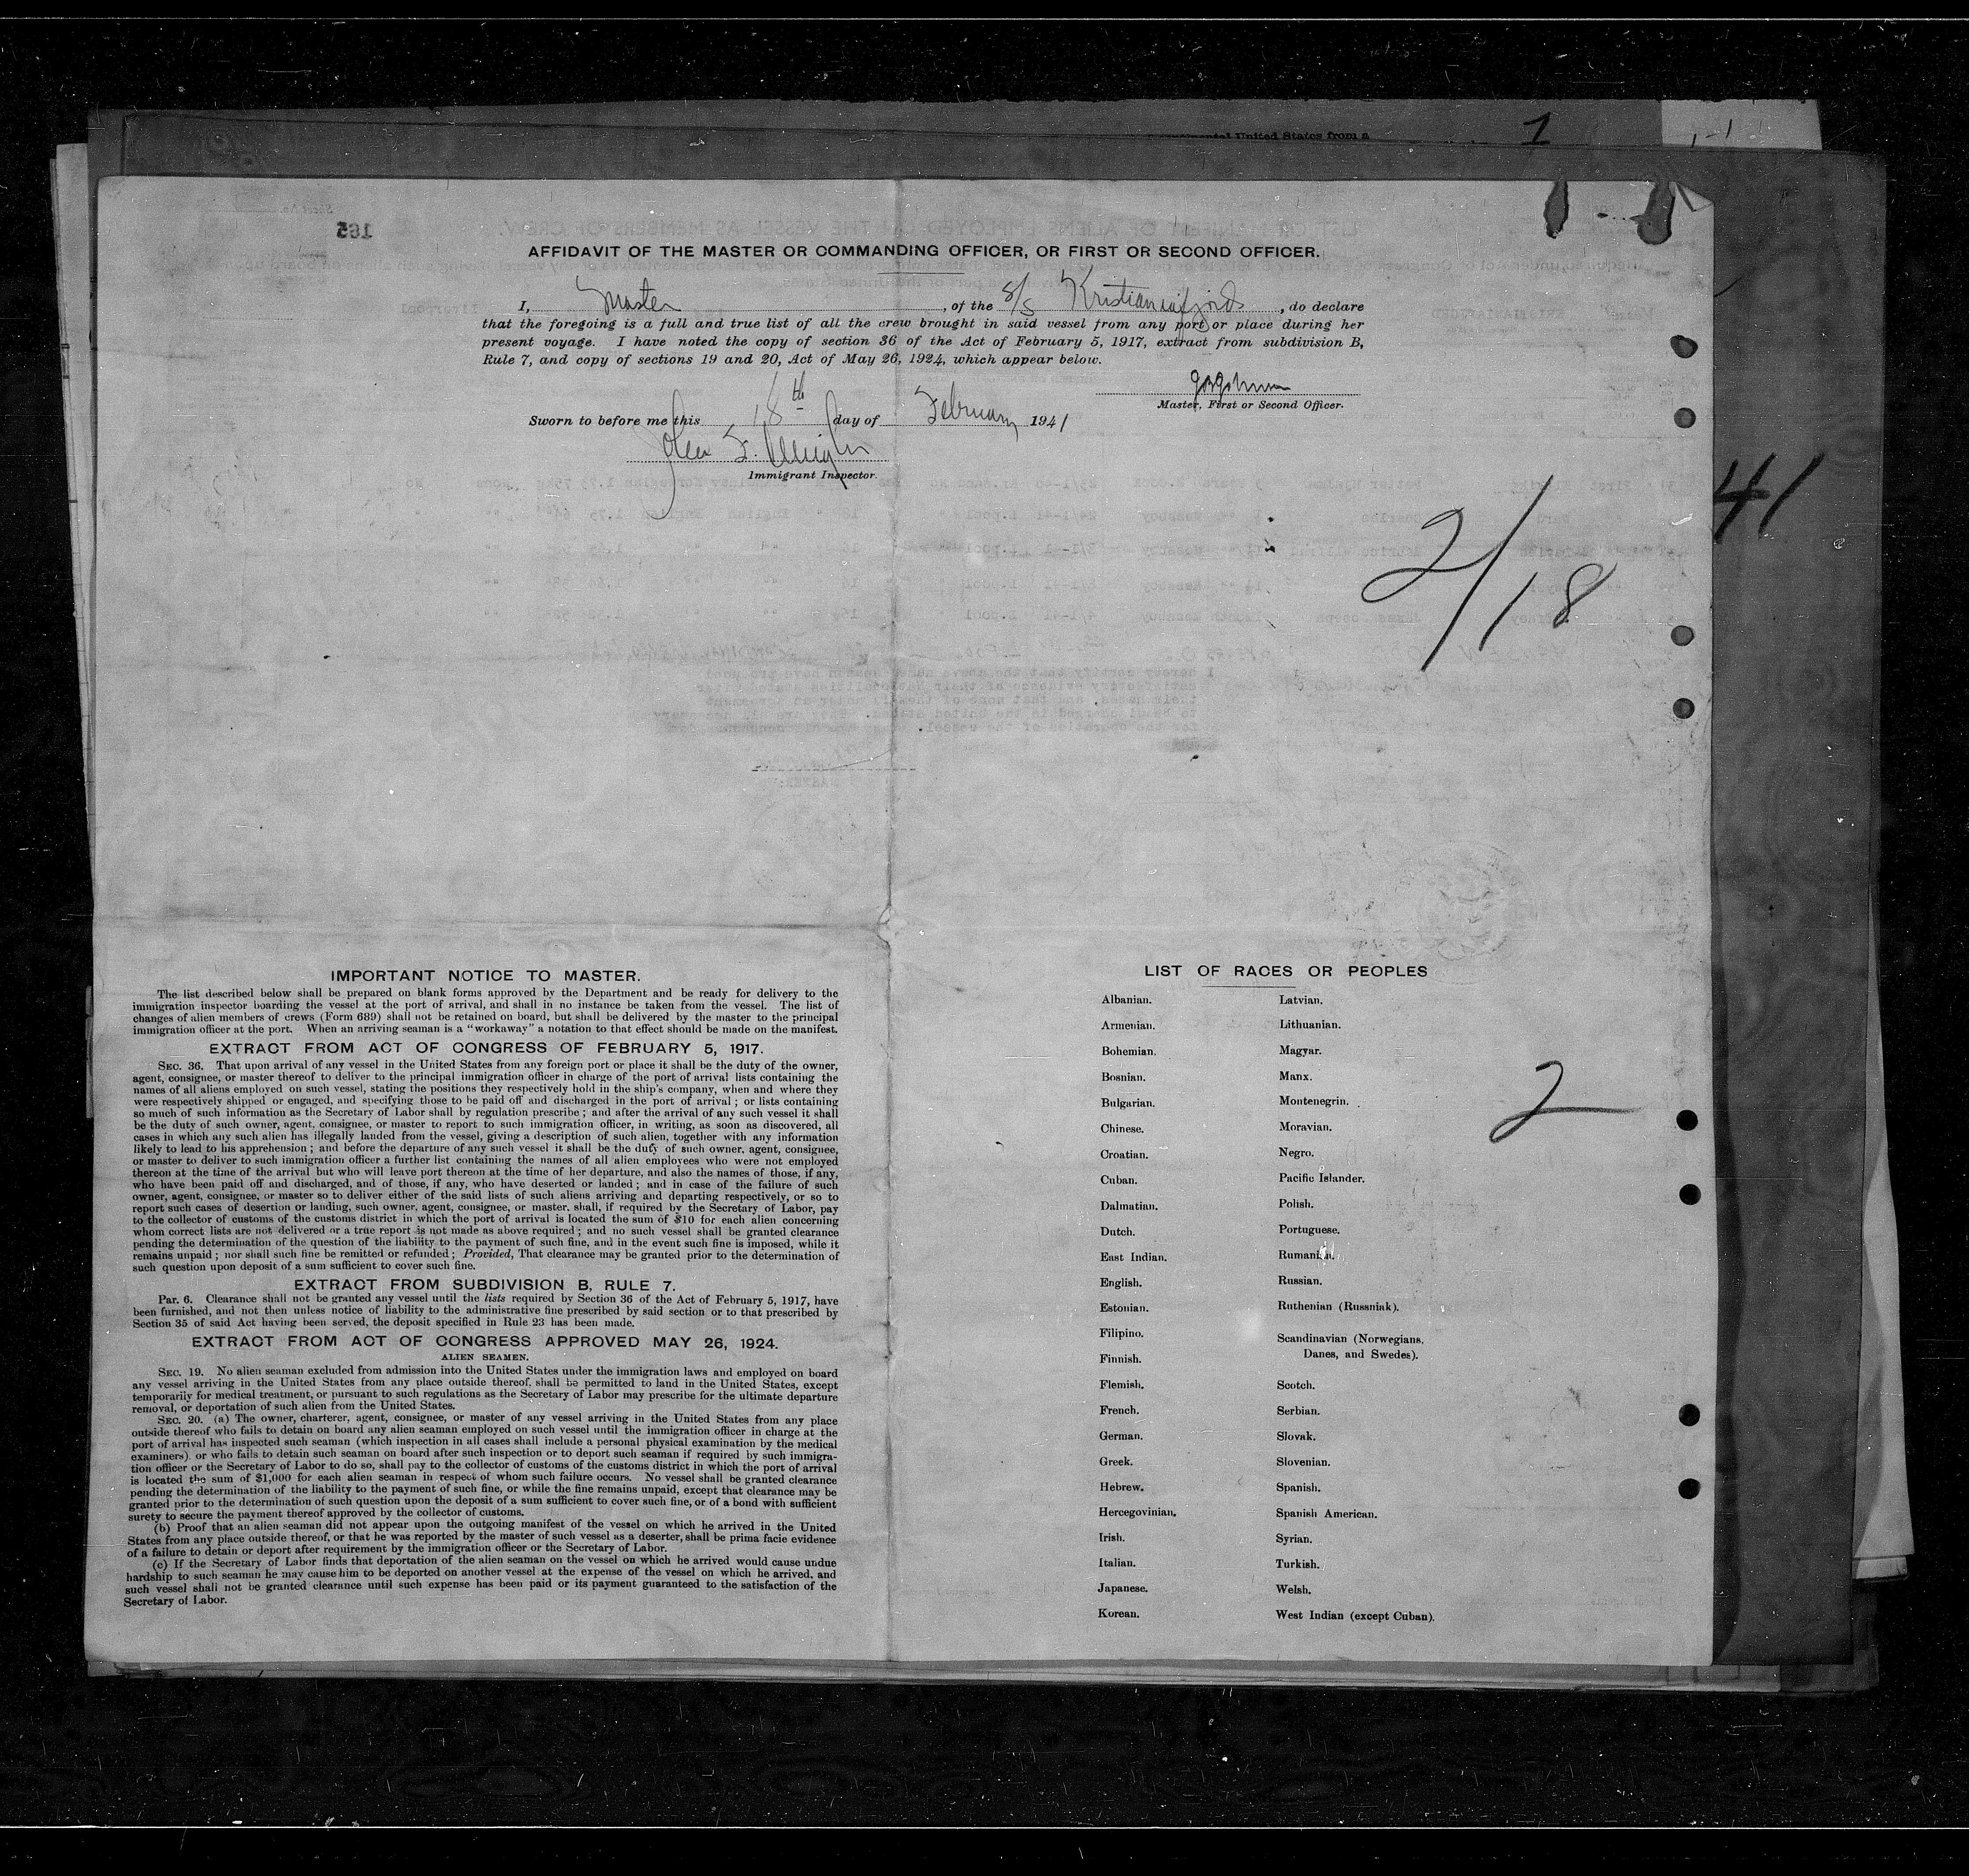 1
AFFIDAVIT OF THE MASTER OR COMMANDING OFFICER, OR FIRST OR SECOND OFFICER.
I, Master, of the S/S Kristianiafjord, do declare
that the foregoing is a full and true list of all the crew brought in said vessel from any port or place during her
present voyage. I have noted the copy of section 36 of the Act of February 5, 1917, extract from subdivision B,
Rule 7, and copy of sections 19 and 20, Act of May 26, 1924, which appear below.
Master, First or Second Officer.
Sworn to before me this 18th day of February 1941
Immigrant Inspector.
41
2/18
IMPORTANT NOTICE TO MASTER.
The list described below shall be prepared on blank forms approved by the Department and be ready for delivery to the
immigration inspector boarding the vessel at the port of arrival, and shall in no instance be taken from the vessel. The list of
changes of alien members of crews (Form 689) shall not be retained on board, but shall be delivered by the master to the principal
immigration officer at the port. When an arriving seaman is a "workaway" a notation to that effect should be made on the manifest.
EXTRACT FROM ACT OF CONGRESS OF FEBRUARY 5, 1917.
SEC. 36. That upon arrival of any vessel in the United States from any foreign port or place it shall be the duty of the owner,
agent, consignee, or master thereof to deliver to the principal immigration officer in charge of the port of arrival lists containing the
names of all aliens employed on such vessel, stating the positions they respectively hold in the ship's company, when and where they
were respectively shipped or engaged, and specifying those to be paid off and discharged in the port of arrival; or lists containing
so much of such information as the Secretary of Labor shall by regulation prescribe; and after the arrival of any such vessel it shall
be the duty of such owner, agent, consignee, or master to report to such immigration officer, in writing, as soon as discovered, all
cases in which any such alien has illegally landed from the vessel, giving a description of such alien, together with any information
likely to lead to his apprehension; and before the departure of any such vessel it shall be the duty of such owner, agent, consignee,
or master to deliver to such immigration officer a further list containing the names of all alien employees who were not employed
thereon at the time of the arrival but who will leave port thereon at the time of her departure, and also the names of those, if any,
who have been paid off and discharged, and of those, if any, who have deserted or landed; and in case of the failure of such
owner, agent, consignee, or master so to deliver either of the said lists of such aliens arriving and departing respectively, or so to
report such cases of desertion or landing, such owner, agent, consignee, or master. shall, if required by the Secretary of Labor, pay
to the collector of customs of the customs district in which the port of arrival is located the sum of $10 for each alien concerning
whom correct lists are not delivered or a true report is not made as above required; and no such vessel shall be granted clearance
pending the determination of the question of the liability to the payment of such fine, and in the event such fine is imposed, while it
remains unpaid; nor shall such fine be remitted or refunded; Provided, That clearance may be granted prior to the determination of
such question upon deposit of a sum sufficient to cover such fine.
EXTRACT FROM SUBDIVISION B, RULE 7.
Par. 6. Clearance shall not be granted any vessel until the lists required by Section 36 of the Act of February 5, 1917, have
been furnished, and not then unless notice of liability to the administrative fine prescribed by said section or to that prescribed by
Section 35 of said Act having been served, the deposit specified in Rule 23 has been made.
EXTRACT FROM ACT OF CONGRESS APPROVED MAY 26, 1924.
ALIEN SEAMEN.
SEC. 19. No alien seaman excluded from admission into the United States under the immigration laws and employed on board
any vessel arriving in the United States from any place outside thereof, shall be permitted to land in the United States, except
temporarily for medical treatment, or pursuant to such regulations as the Secretary of Labor may prescribe for the ultimate departure
removal, or deportation of such alien from the United States.
SEC. 20. (a) The owner, charterer, agent, consignee, or master of any vessel arriving in the United States from any place
outside thereof who fails to detain on board any alien seaman employed on such vessel until the immigration officer in charge at the
port of arrival has inspected such seaman (which inspection in all cases shall include a personal physical examination by the medical
examiners). or who fails to detain such seaman on board after such inspection or to deport such seaman if required by such immigra-
tion officer or the Secretary of Labor to do so, shall pay to the collector of customs of the customs district in which the port of arrival
is located the sum of $1,000 for each alien seaman in respect of whom such failure occurs. No vessel shall be granted clearance
pending the determination of the liability to the payment of such fine, or while the fine remains unpaid, except that clearance may be
granted prior to the determination of such question upon the deposit of a sum sufficient to cover such fine, or of a bond with sufficient
surety to secure the payment thereof approved by the collector of customs.
(b) Proof that an alien seaman did not appear upon the outgoing manifest of the vessel on which he arrived in the United
States from any place outside thereof, or that he was reported by the master of such vessel as a deserter, shall be prima facie evidence
of a failure to detain or deport after requirement by the immigration officer or the Secretary of Labor.
(c) If the Secretary of Labor finds that deportation of the alien seaman on the vessel on which he arrived would cause undue
hardship to such seaman he may cause him to be deported on another vessel at the expense of the vessel on which he arrived, and
such vessel shall not be granted clearance until such expense has been paid or its payment guaranteed to the satisfaction of the
Secretary of Labor.
LIST OF RACES OR PEOPLES
Albanian.
Armenian.
Bohemian.
Bosnian.
Bulgarian.
Chinese.
Croatian.
Cuban.
Dalmatian.
Dutch.
East Indian.
English.
Estonian.
Filipino.
Finnish.
Flemish.
French.
German.
Greek.
Hebrew.
Hercegovinian.
Irish.
Italian.
Japanese.
Korean.
Latvian.
Lithuanian.
Magyar.
Manx.
Montenegrin.
Moravian.
Negro.
Pacific Islander.
Polish.
Portuguese.
Rumanian.
Russian.
Ruthenian (Russniak).
Scandinavian (Norwegians,
Danes, and Swedes).
Scotch.
Serbian.
Slovak.
Slovenian.
Spanish.
Spanish American.
Syrian.
Turkish.
Welsh.
West Indian (except Cuban).
2